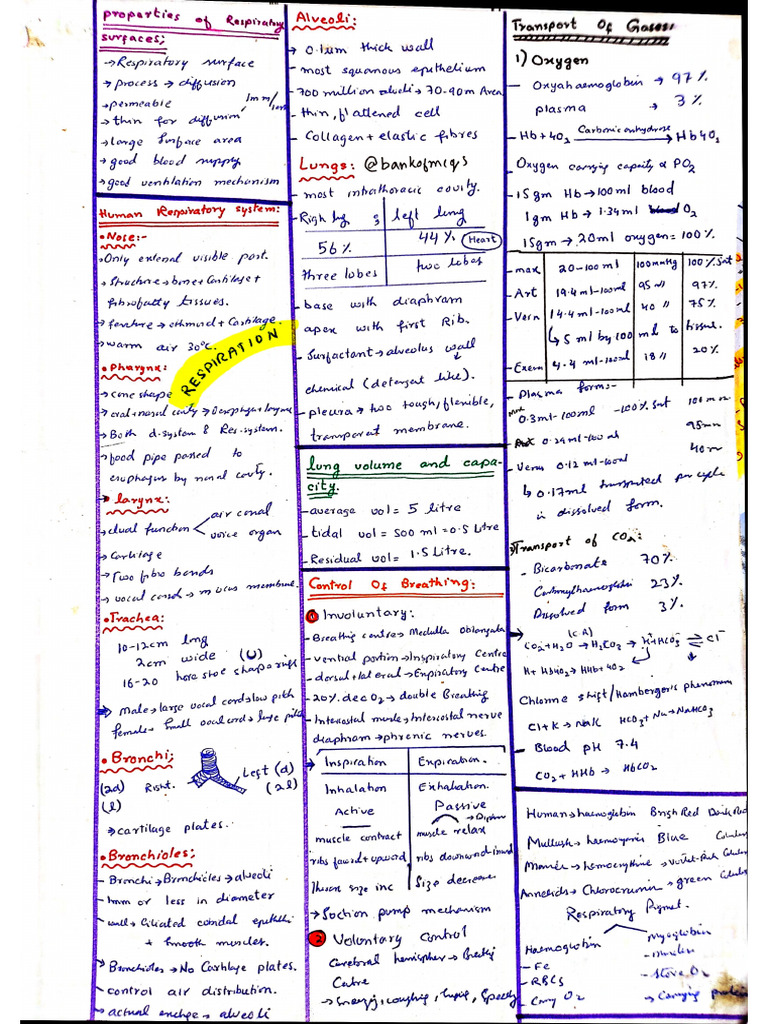 properties of Respiratory
surfaces;
→ Respiratory surface
→ process → diffusion
→ permeable
→ thin for diffusion, 1mm/less
→ large surface area
→ good blood supply
→ good ventilation mechanism
Human Respiratory system:
• Nose:-
→ Only external visible part.
→ structure → bone + cartilage +
fibrofatty tissues.
→ ethmoid + cartilage.
→ warm air 30°C.
RESPIRATION
• Pharynx:
→ cone shape
→ oral + nasal cavity →
→ Both d-system & Res. system.
→ food pipe passed to
esophagus by nasal cavity.
• larynx:
- dual function < air canal
voice organ
→ cartilage
→ Two fibro bands
→ vocal cords → mucus membrane.
• Trachea:
10-12cm long
2cm wide (U)
16-20 horse shoe shape rings
→ Male → large vocal cords → low pitch
female → small vocal cord → large pitch
• Bronchi;
(2d) Right. Left (d)
(l) (2l)
→ cartilage plates.
• Bronchioles;
- Bronchi → Bronchioles → alveoli
- 1mm or less in diameter
- wall → Ciliated epitheli
+ smooth muscles.
→ Bronchioles → No Cartilage plates.
- control air distribution.
→ actual exchge → alveoli
Alveoli:
→ 0.1um thick wall
- most squamous epithelium
- 700 million alveoli → 70-90m Area
- thin, flattened cell
- Collagen + elastic fibres
Lungs: @bankofmcqs
- most intrathoracic cavity.
- Righ lug ; left lung
56% 44% (Heart)
three lobes two lobes
- base with diaphram
apex with first Rib.
- Surfactant → alveolus wall
chemical (detergent like).
- pleura → two tough, flexible,
transparat membrane.
lung volume and capa-
city.
- average vol = 5 litre
- tidal vol = 500 ml = 0.5 litre
- Residual vol = 1.5 litre.
Control Of Breathing:
① Involuntary:
- Breathig centre → Medulla oblongata
- ventral portion → Inspiratory Centre
- dorsal + lateral → Expiratory Centre
- 20% dec O₂ → double Breathing
- Intercostal muscle → Intercostal nerve
diaphram → phrenic nerves.
→ Inspiration Expiration.
Inhalation Exhalation.
Active Passive
muscle contract muscle relax
ribs forward + upward ribs downward + inward
size inc Size decrease.
→ Suction pump mechanism
② Voluntary Control
Cerebral hemispher → Breathig
Centre
→ Sneezig, coughing,
Transport Of Gases:
1) Oxygen
- Oxyahaemoglobin → 97%
plasma → 3%
- Hb + 4O₂ Carbonic anhydrose → Hb4O₂
- Oxygen carrying capacity α PO₂
- 15gm Hb → 100ml blood
1gm Hb → 1.34ml O₂
15gm → 20ml oxygen = 100%
- max 20-100ml 100mmHg 100% Sat
- Art 19.4ml-100ml 95 " 97%
- Vern 14.4ml-100ml 40 " 75%
↳ 5 ml by 100 ml to tissue.
- Exern 4.4 ml-100ml 18 " 20%
- Plasma form:-
0.3ml-100ml - 100% Sat 100mm
- 0.29ml-100ml 95mm
- Venus 0.12ml-100ml 40m
↳ 0.17ml transported per cycle
in dissolved form.
Transport of CO₂:
- Bicarbonate 70%
23%
Dissolved form 3%
→ CO₂ + H₂O (CA) → H₂CO₃ → H⁺ + HCO₃⁻ ⇌ Cl⁻
Chlorine shift / Hamberger's phenomenon
Cl + K → HCO₃ + Na → NaHCO₃
- Blood pH 7.4
CO₂ + HHb → HbCO₂
Human → haemoglobin Brigh Red Dark Red
Mullush → haemocynin Blue
→ hemoerythrine →
Annelids → Chlorocrumin → green
Respiratory Pigmet.
Haemoglobin Myoglobin
- Fe
- RBCs - Store O₂
- Carry O₂